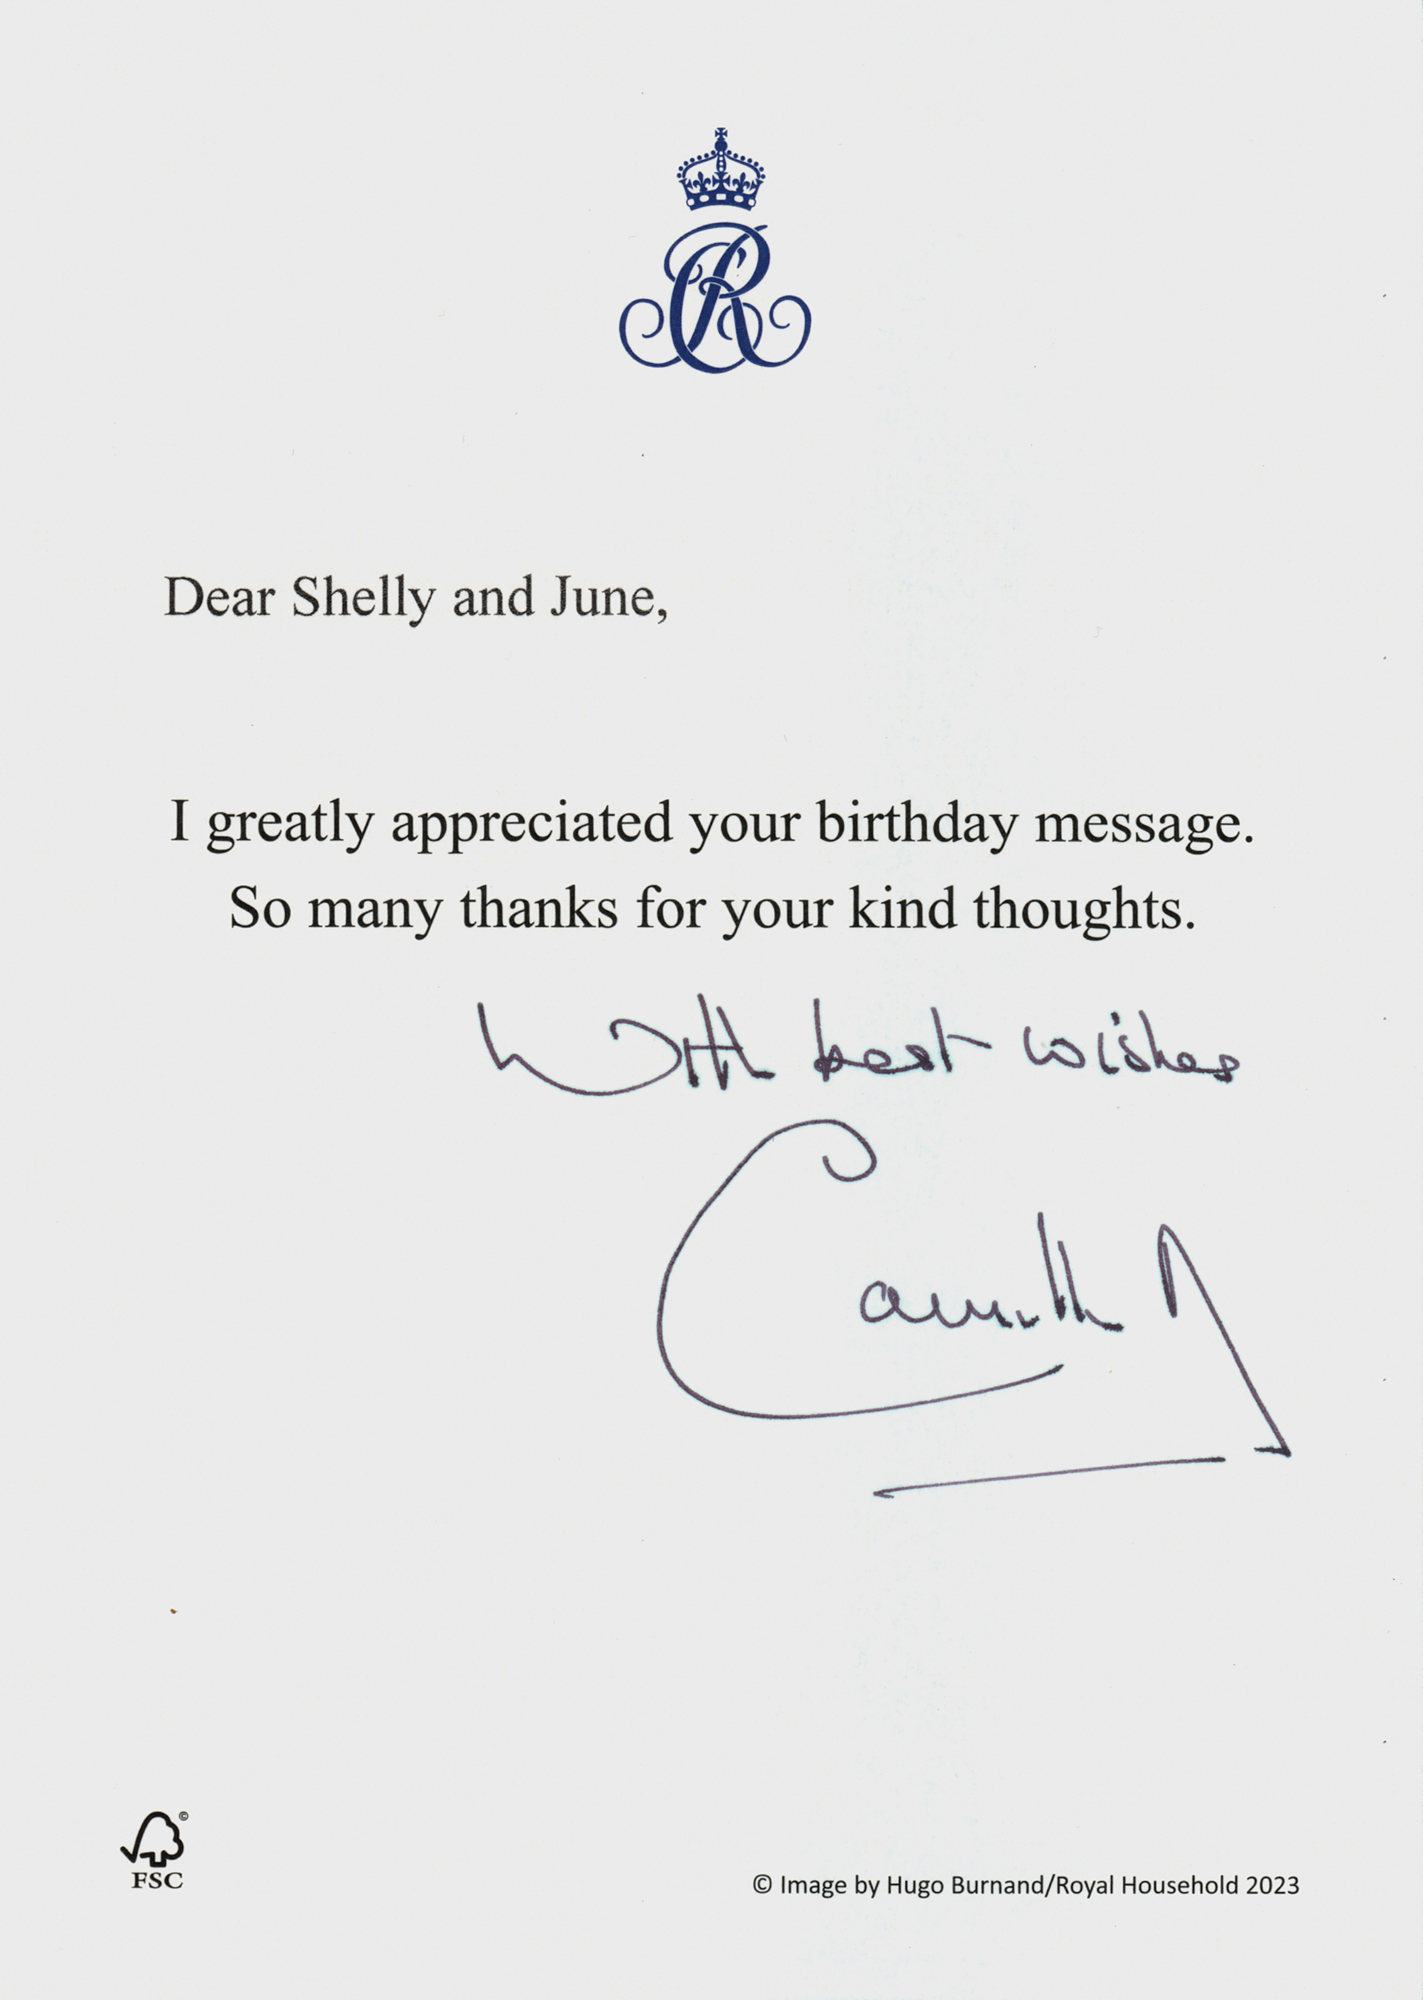 CR
Dear Shelly and June,
I greatly appreciated your birthday message.
So many thanks for your kind thoughts.
With best wishes
Camilla R
©
FSC
© Image by Hugo Burnand/Royal Household 2023